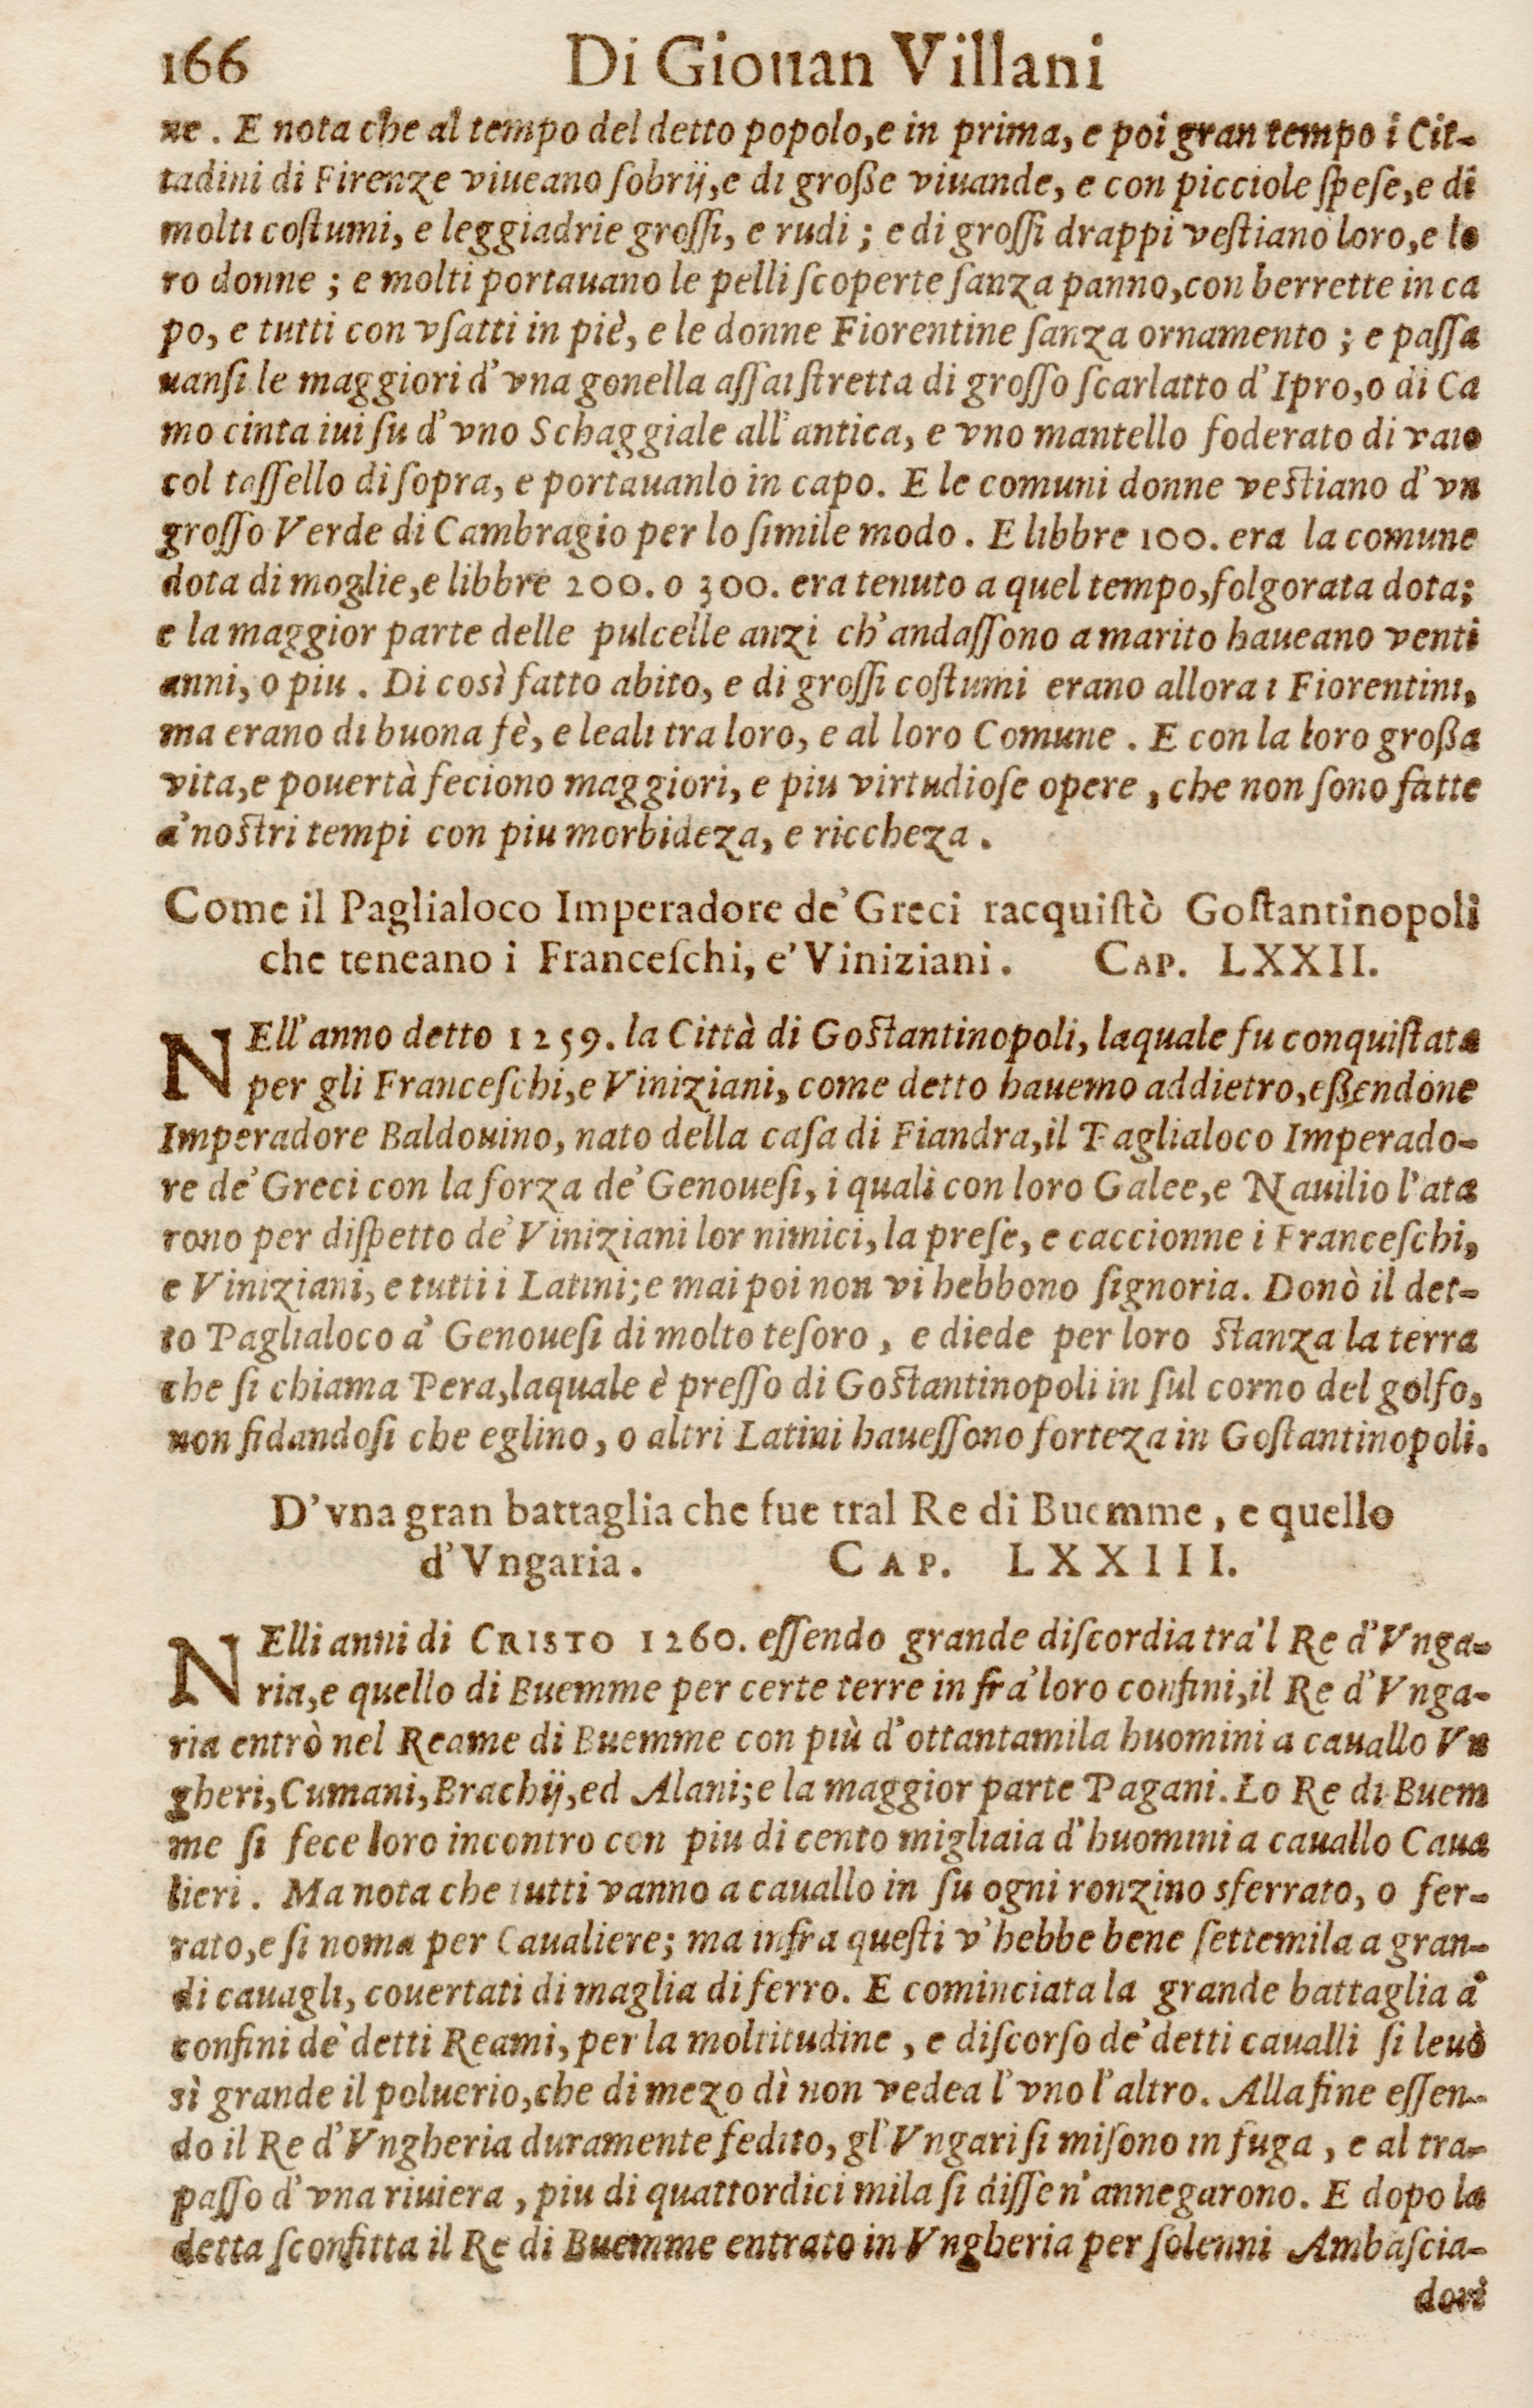 166 Di Giouan Villani
ne. E nota che al tempo del detto popolo, e in prima, e poi gran tempo i Cit-
tadini di Firenze viueano ſobrij, e di groſſe viuande, e con picciole ſpeſe, e di
molti coſtumi, e leggiadrie groſſi, e rudi; e di groſſi drappi veſtiano loro, e lo
ro donne; e molti portauano le pelli ſcoperte ſanza panno, con berrette in ca
po, e tutti con vſatti in piè, e le donne Fiorentine ſanza ornamento; e paſſa
uanſi le maggiori d'vna gonella aſſai ſtretta di groſſo ſcarlatto d'Ipro, o di Ca
mo cinta iui ſu d'vno Schaggiale all'antica, e vno mantello foderato di vaio
col taſſello di ſopra, e portauanlo in capo. E le comuni donne veſtiano d'vn
groſſo Verde di Cambragio per lo ſimile modo. E libbre 100. era la comune
dota di moglie, e libbre 200. o 300. era tenuto a quel tempo, folgorata dota;
e la maggior parte delle pulcelle anzi ch'andaſſono a marito haueano venti
anni, o piu. Di così fatto abito, e di groſſi coſtumi erano allora i Fiorentini,
ma erano di buona fè, e leali tra loro, e al loro Comune. E con la loro groſſa
vita, e pouertà feciono maggiori, e piu virtudioſe opere, che non ſono fatte
a' noſtri tempi con piu morbideza, e riccheza.
Come il Paglialoco Imperadore de' Greci racquiſtò Goſtantinopoli
che teneano i Franceſchi, e' Viniziani. CAP. LXXII.
NEll'anno detto 1259. la Città di Goſtantinopoli, laquale fu conquiſtata
per gli Franceſchi, e Viniziani, come detto hauemo addietro, eſſendone
Imperadore Baldouino, nato della caſa di Fiandra, il Paglialoco Imperado-
re de' Greci con la forza de' Genoueſi, i quali con loro Galee, e Nauilio l'ata
rono per diſpetto de' Viniziani lor nimici, la preſe, e caccionne i Franceſchi,
e Viniziani, e tutti i Latini; e mai poi non vi hebbono ſignoria. Donò il det-
to Paglialoco a' Genoueſi di molto teſoro, e diede per loro ſtanza la terra
che ſi chiama Pera, laquale è preſſo di Goſtantinopoli in ſul corno del golfo,
non fidandoſi che eglino, o altri Latini haueſſono forteza in Goſtantinopoli.
D'vna gran battaglia che fue tral Re di Buemme, e quello
d'Vngaria. CAP. LXXIII.
NElli anni di CRISTO 1260. eſſendo grande diſcordia tra'l Re d'Vnga-
ria, e quello di Buemme per certe terre in fra' loro confini, il Re d'Vnga-
ria entrò nel Reame di Buemme con più d'ottantamila huomini a cauallo Vn
gheri, Cumani, Brachij, ed Alani; e la maggior parte Pagani. Lo Re di Buem
me ſi fece loro incontro con piu di cento migliaia d'huomini a cauallo Caua
lieri. Ma nota che tutti vanno a cauallo in ſu ogni ronzino sferrato, o fer-
rato, e ſi noma per Caualiere; ma infra queſti v'hebbe bene ſettemila a gran-
di cauagli, couertati di maglia di ferro. E cominciata la grande battaglia a'
confini de' detti Reami, per la moltitudine, e diſcorſo de' detti caualli ſi leuò
sì grande il poluerio, che di mezo dì non vedea l'vno l'altro. Alla fine eſſen-
do il Re d'Vngheria duramente fedito, gl'Vngari ſi miſono in fuga, e al tra-
paſſo d'vna riuiera, piu di quattordici mila ſi diſſe n'annegarono. E dopo la
detta ſconfitta il Re di Buemme entrato in Vngheria per ſolenni Ambaſcia-
dori